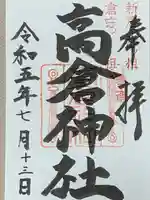 奉拝
高倉神社
令和五年七月十三日